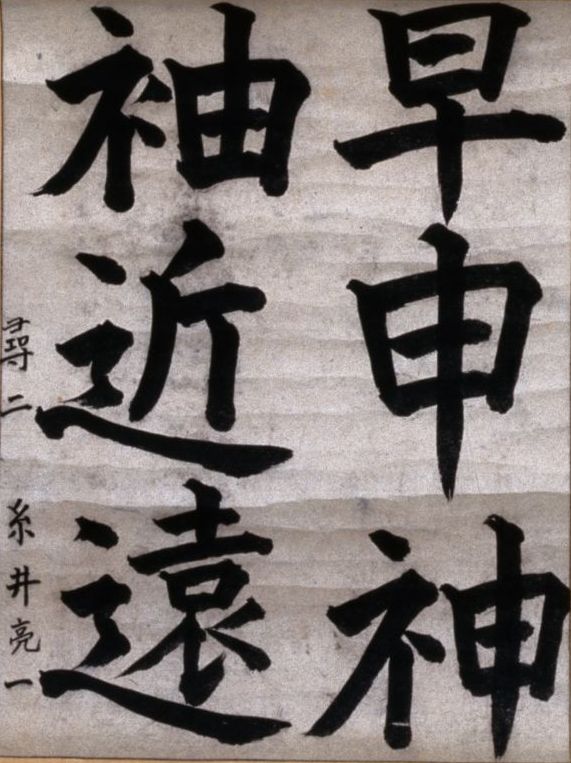 早申神
袖近遠
尋二 糸井亮一